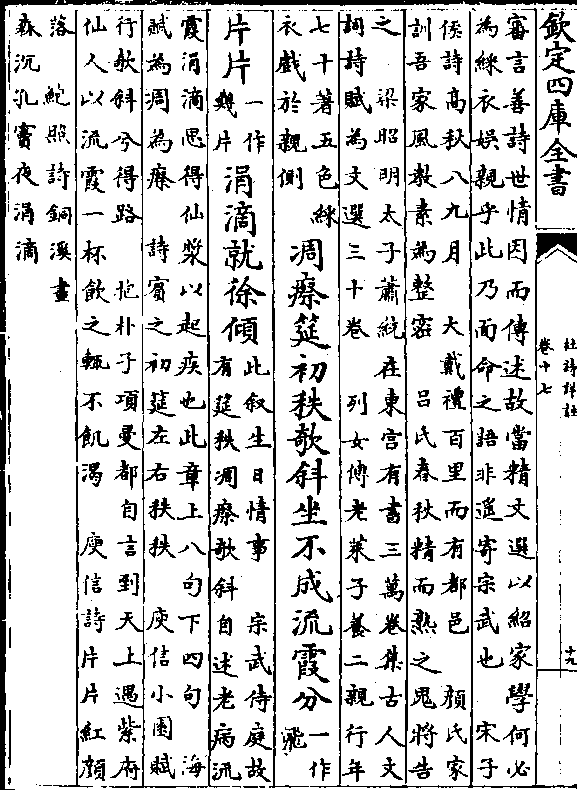 欽定四庫全書
杜詩詳註
卷十七
十九
審言善詩世情因而傳述故當精文選以紹家學何必
為綵衣娛親乎此乃面命之語非遥寄宗武也　宋子
侯詩高秋八九月　大戴禮百里而有都邑　顔氏家
訓吾家風教素為整密　吕氏春秋精而熟之鬼將告
之　梁昭明太子蕭統在東宫有書三萬卷集古人文
詞詩賦為文選三十卷　列女傳老萊子養二親行年
七十著五色綵
衣戲於親側
凋瘵筵初秩欹斜坐不成流霞分
一作
飛
片片
一作
幾片
涓滴就徐傾
此叙生日情事　宗武侍庭故
有筵秩凋瘵欹斜自述老病流
霞涓滴思得仙漿以起疾也此章上八句下四句　海
賦為凋為瘵　詩賓之初筵左右秩秩　庾信小園賦
行欹斜兮得路　抱朴子項曼都自言到天上遇紫府
仙人以流霞一杯飲之輒不飢渴　庾信詩片片紅顔
落　鮑照詩銅溪晝
森沉乳竇夜涓滴